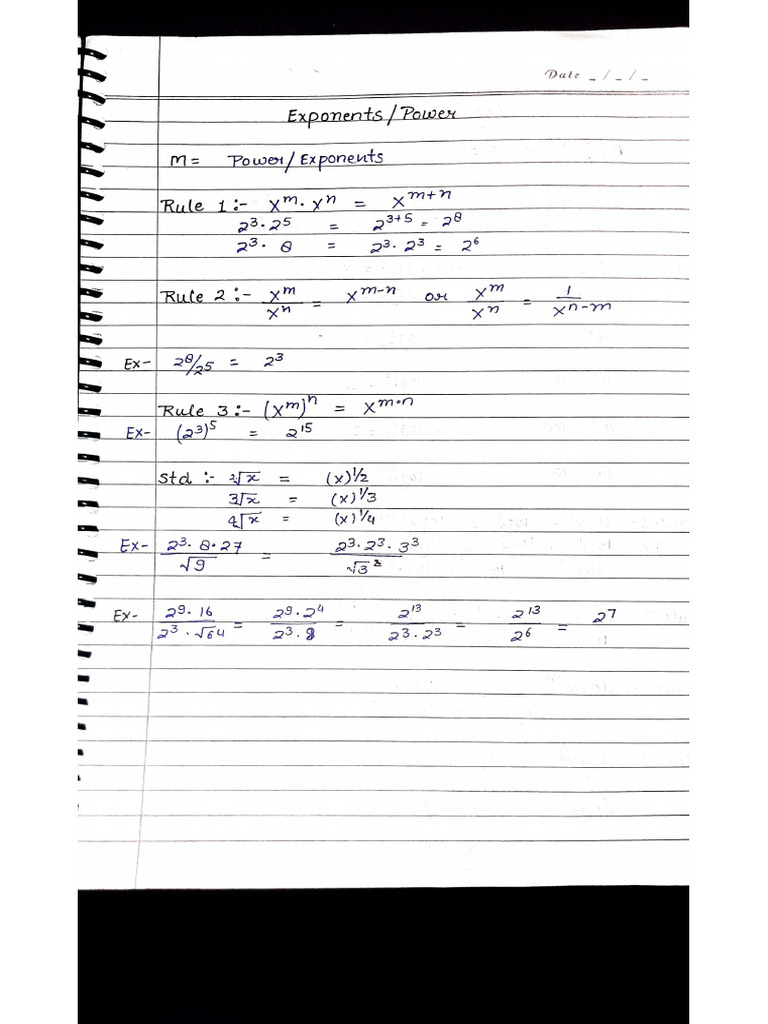 Date _ / _ / _
Exponents/Power
m = Power/Exponents
Rule 1:- x^m · x^n = x^(m+n)
2^3 · 2^5 = 2^(3+5) = 2^8
2^3 · 8 = 2^3 · 2^3 = 2^6
Rule 2:- x^m/x^n = x^(m-n) or x^m/x^n = 1/x^(n-m)
Ex- 2^8/2^5 = 2^3
Rule 3:- (x^m)^n = x^(m·n)
Ex- (2^3)^5 = 2^15
Std :- ²√x = (x)^1/2
3√x = (x)^1/3
4√x = (x)^1/4
Ex- 2^3 · 8 · 27/√9 = 2^3 · 2^3 · 3^3/√3^2
Ex- 2^9 · 16/2^3 · √64 = 2^9 · 2^4/2^3 · 8 = 2^13/2^3 · 2^3 = 2^13/2^6 = 2^7